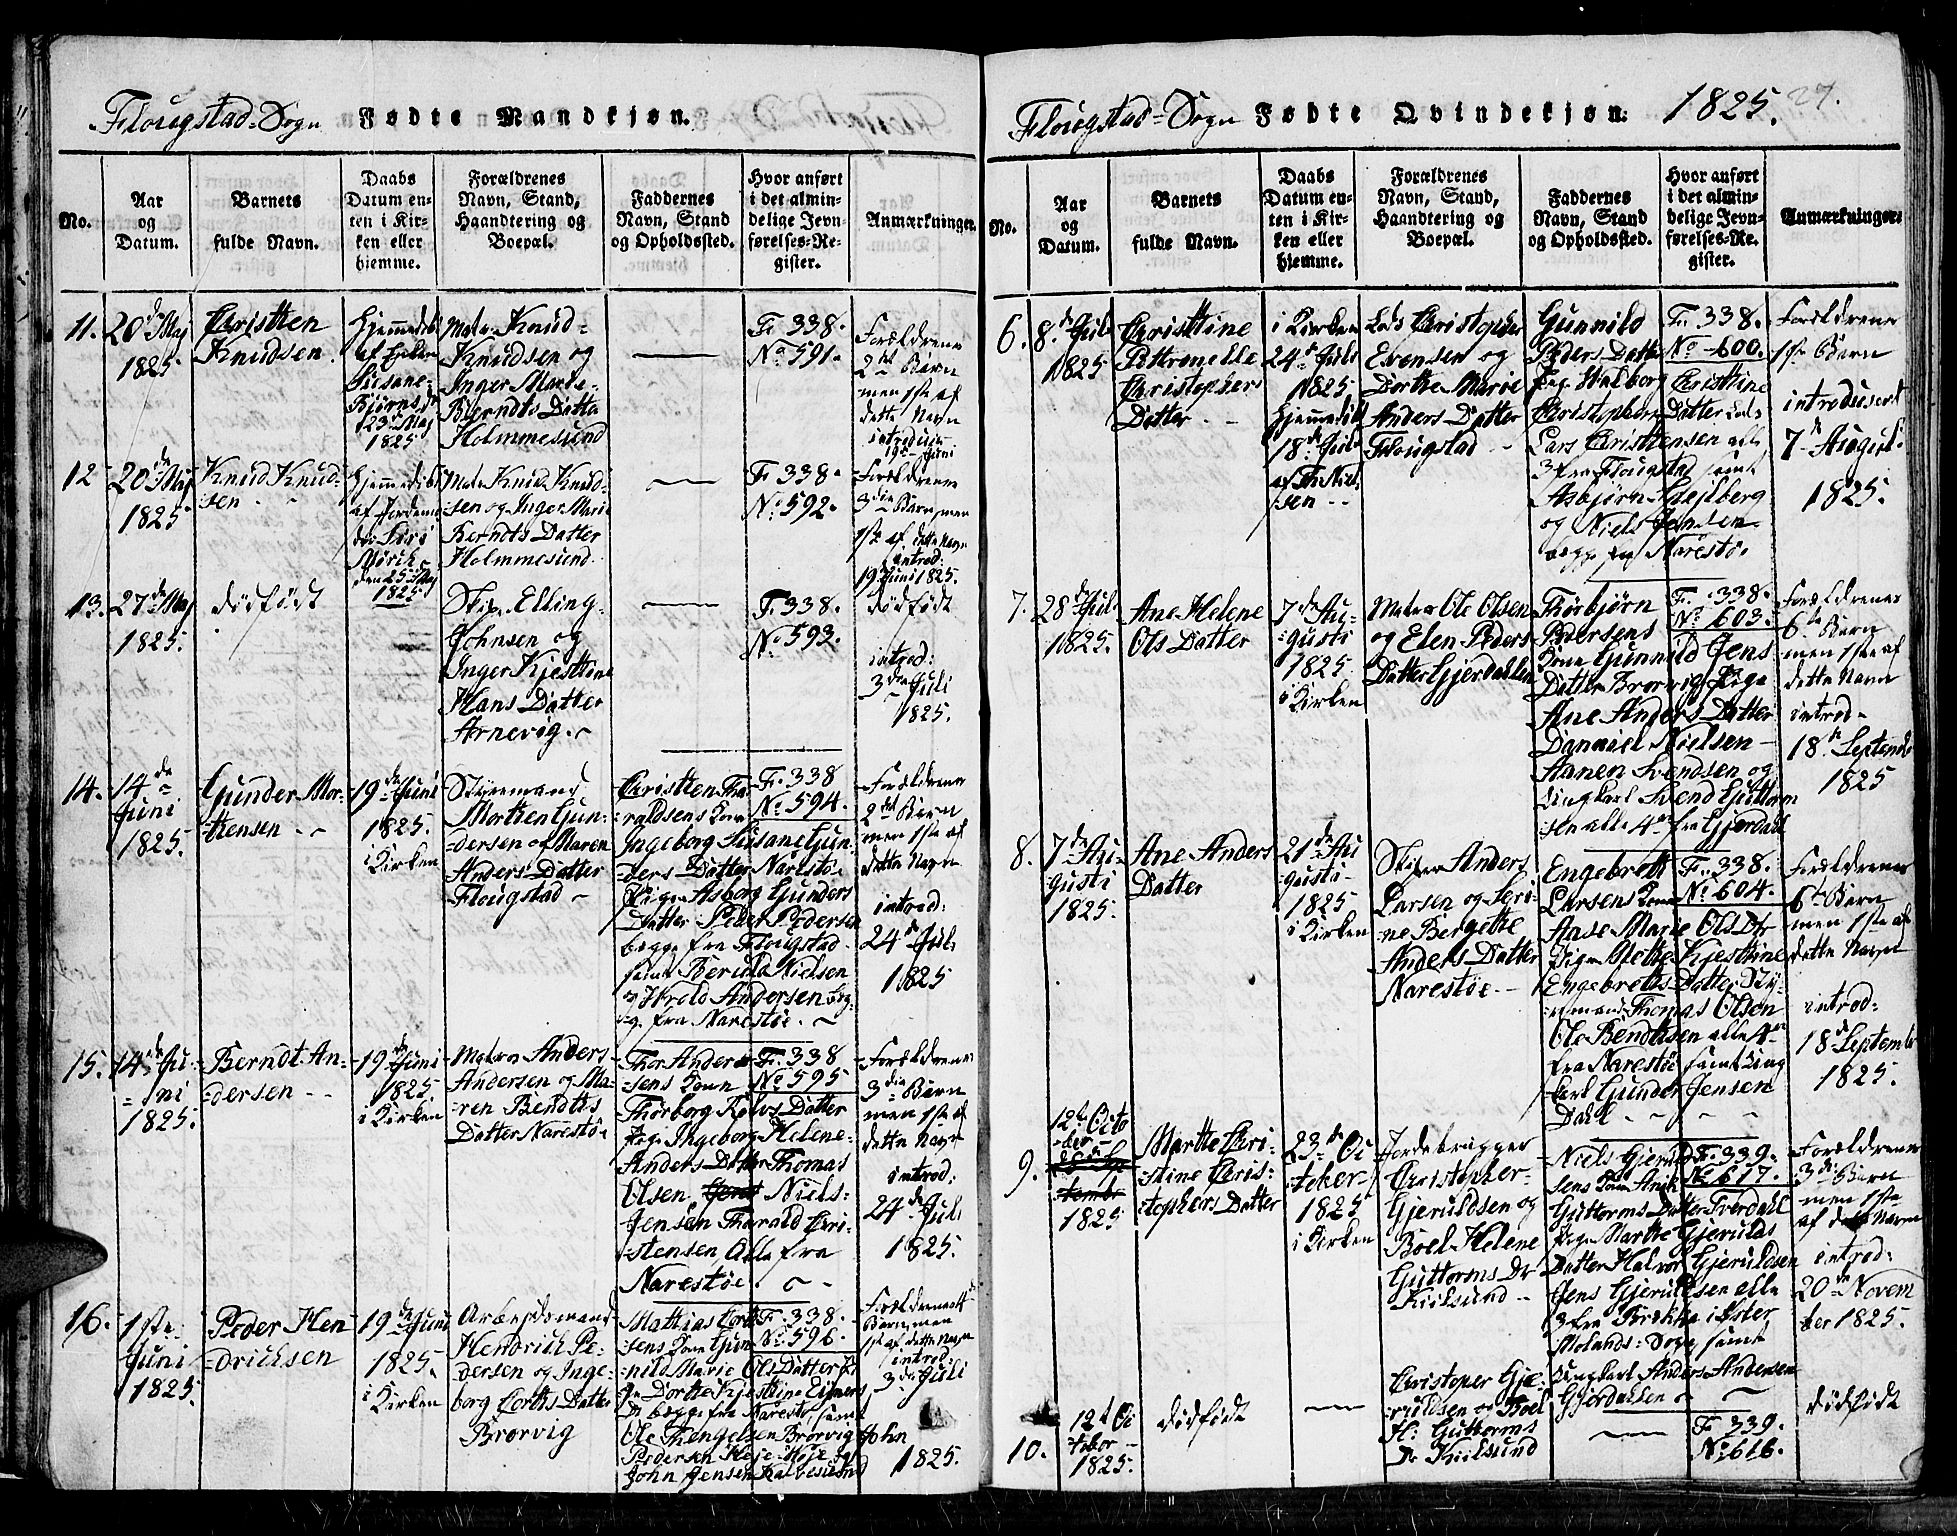 Flougstad-Sogn Fødte Mandkjøn.
No.
Aar
og
Datum.
Barnets
fulde Navn.
Daabs
Datum en-
ten i Kir-
ken eller
hjemme.
Forældrenes
Navn, Stand,
Haandtering og
Boepæl.
Faddernes
Navn, Stand
og Opholdssted.
Hvor anført
i det almin-
delige Jevn-
førelses-Re-
gister.
Anmærkninger.
11.
20de Maj
1825.
Christen
Knudsen.
Hjemmedøbt
af
Susane
Bjørns Dr
23de Maj
1825
Matr. Knud
Knudsen og
Inger Marie
Berndts Datter
Holmmesund
F. 338.
No 591.
Forældrenes
2det Barn
men 1ste af
dette Navn
introd.
19de Juni
12
20de Maj
1825
Knud Knud-
sen
Hjemmedøbt
af Jordemo-
der Siri
den 25de Maj
1825
Matr. Knud Knud-
sen og Inger Marie
Berndts Datter
Holmmesund.
F. 338.
No. 592.
Forældrenes
3die Barn men
1ste af dette Navn
introd:
19 Juni 1825.
13.
27de Maj
1825.
dødfødt
Skip. Elling
Johnsen og
Inger Kjestine
Hans Datter
Arnevig.
F. 338.
No. 593.
dødfødt
introd:
3die Juli
1825.
14.
14de
Juni
1825.
Gunder Mor-
tensen
19de Juni
1825.
i Kirken
Styremand
Morthen Gun-
dersen og Maren
Anders Datter
Flougstad
Christen Tha-
raldsens Kone
Ingeborg Susane Gun-
ders Datter Narestøe
Pige Asborg Gunders
Datter Peder Pedersen
begge fra Flougstad
samt Berulf Nielsen
og Harold Andersen beg-
ge fra Narestøe.
F. 338
No 594.
Forældrenes
2det Barn
men 1ste af
dette Navn
introd:
24de Juli
1825
15.
14de Ju-
ni
1825.
Berndt An-
dersen
19de Juni
1825
i Kirken
Matros Anders
Andersen og Ma-
ren Bendts
Datter Narestøe
Thor Ander-
sens Kone
Thorborg Rolvs Datter
Pige Ingeborg Helene
Anders Datter Thomas
Olsen Niels
Jensen Tharald Cri-
stensen Alle fra
Narestøe
F. 338
No 595
Forældrenes
3die Barn
men 1ste af
dette Navn
introd:
24de Juli
1825.
16.
1ste
Juni
1825.
Peder Hen-
dricksen
19de Juni
1825.
i Kirken
Arbeydsmand
Hendrich Pe-
dersen og Inge-
borg Corths Datter
Brorvig
Mathias Cort-
sens Kone Gun-
nild Marie Ols Datter Pi-
ge Dorthe Kjestine Ejners
Dr begge fra Narestø, samt
Ole Thengelsen Brorvig John
Pedersen Heje Høje og
John Jensen Kalvesund
F. 338.
No. 596.
Forældrenes
Barn men
1ste af dette Navn
introd:
3die Juli
1825.
Flougstad-Sogn Fødte Qvindekjøn: 1825. 27.
No.
Aar
og
Datum.
Barnets
fulde Navn.
Daabs
Datum en-
ten i Kir-
ken eller
hjemme.
Forældrenes
Navn, Stand,
Haandtering og
Boepæl.
Faddernes
Navn, Stand
og Opholdssted.
Hvor anført
i det almin-
delige Jevn-
førelses-Re-
gister.
Anmærkninger.
6.
8de Juli
1825
Christine
Petronelle
Christophers
Datter
i Kirken
24de Juli
1825
Hjemmedøbt
18de Juli
af Th Niel-
sen
Lods Christopher
Evensen og
Dorthe Marie
Anders Datter
Flougstad
Gunnild
Peders Datter
Pige Walborg Christine
Christophers Datter Lods
Lars Christensen alle
3 fra Flougstad samt
Asbjørn Hejlberg
og Niels Jensen
begge fra Narestø.
F. 338.
No 600.
Forældrenes
1ste Barn
introduseret
7de August
1825.
7.
28de Juli
1825.
Ane Helene
Ols Datter
7de Au-
gusti
1825
i Kirken
Matros Ole Olsen
og Elen Peders
Datter Gjerdalen
Thorbjørn
Pedersens
Kone Gunnild Jens
Datter Brorvig Pige
Ane Anders Datter
Danniel Nielsen
Aanen Svendsen og
Ungkarl Svend Guttorm-
sen alle 4re fra Gjerdahl
F. 338.
No. 603.
Forældrenes
6te Barn
men 1ste af
dette Navn
introd
18de Septembr
1825
8.
7de Au-
gusti
1825.
Ane Anders
Datter
21de Au-
gusti
1825
i Kirken
Skiper Anders
Larsen og Seri-
ne Bergette
Anders Datter
Narestøe
Engebrett
Larsens Kone
Anse Marie Ols Dtr
Pige Mette Kjestine
Engebretts Datter Sty-
rmand Thomas Olsen
Ole Bendtsen alle 4re
fra Narestøe samt Ung-
karl Gunder Jensen
Dahl
F. 338.
No. 604.
Forældrenes
6te Barn
men 1ste af
dette Navn
introd:
18de Septembr
1825.
9.
12te Octo-
ber
1825
Marthe Chri-
stine Chris-
tophers Datter
23de Oc-
tober
1825
i Kirken
Jordebrugger
Christopher
Gjeruldsen og
Boel Helene
Guttorms Dr
Kiilsund
Niels Gjeruld-
sens Kone Anik
Guttorms Datter Tverdahl
Pige Marthe Gjerulds
Datter Halvor Gjeruldsen
Jens Gjeruldsen alle
3 fra Brække i Øster
Molands Sogn samt
Ungkarl Anders Andersen
Gjerdahlen
F. 339.
No. 617.
Forældrenes
3die Barn
men 1ste
af dette Navn
introd:
20de Novem-
ber 1825.
10.
12te Oc-
tober
1825.
dødfødt
Cristoper Gje-
ruldsen og Boel
H: Guttorms
Dr Kiilsund
F. 339.
No. 616.
dødfødt